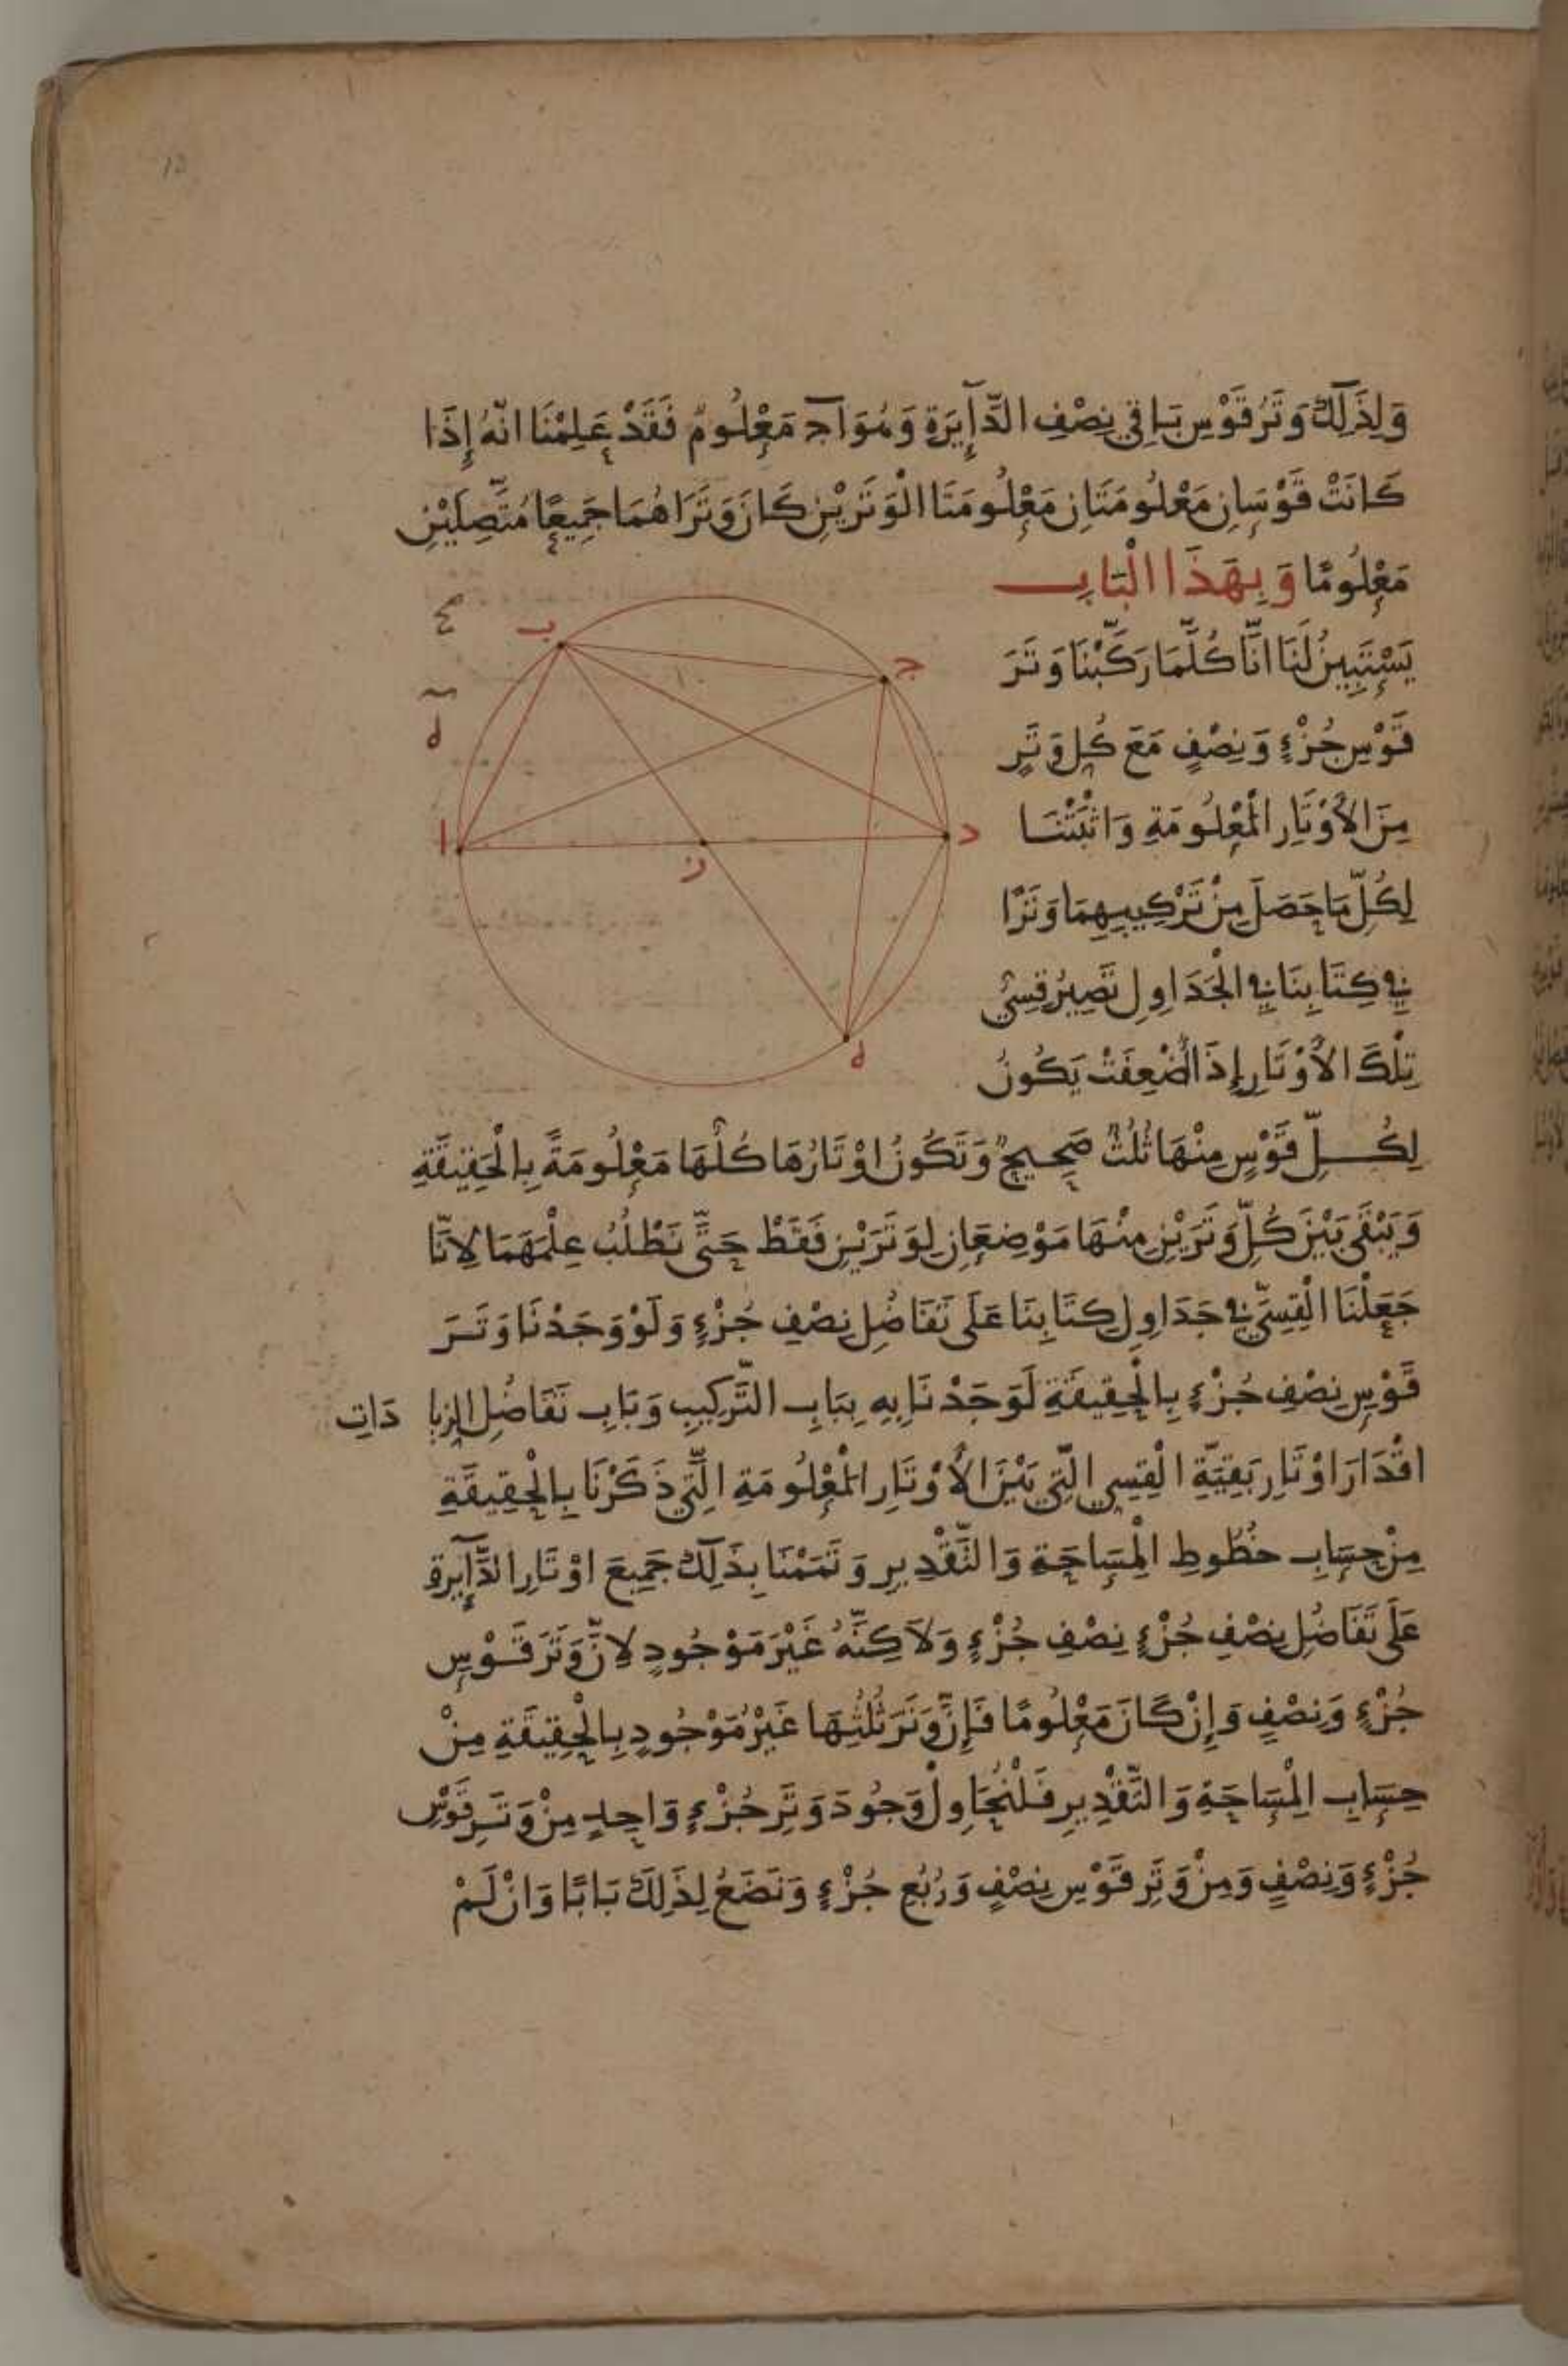 وَلِذَلِكَ وَتَرُ قَوْسِ بَاقِي نِصْفِ الدَّآيِرَةِ وَهُوَ اج مَعْلُومٌ فَقَدْ عَلِمْنَا انَّهُ إِذَا
كَانَتْ قَوْسَانِ مَعْلُومَتَانِ مَعْلُومَتَا الْوَتَرَيْنِ كَانَ وَتَرَاهُمَا جَمِيعًا مُتَّصِلَيْنِ
مَعْلُومًا وَبِهَذَا الْبَابِ
يَسْتَبِينُ لَنَا انَّا كُلَّمَا رَكَّبْنَا وَتَرَ
قَوْسِ جُزْءٍ وَنِصْفٍ مَعَ كُلِ وَتَرٍ
مِنَ الأَوْتَارِ الْمَعْلُومَةِ وَاثْبَتْنَا
لِكُلِّ مَا حَصَلَ مِنْ تَرْكِيبِهِمَا وَتَرًا
فِي كِتَابِنَا فِي الْجَدَاوِلِ تَصِيرُ قِسِيُّ
تِلْكَ الأَوْتَارِ إِذَا أُضْعِفَتْ يَكُونُ
لِكُلِّ قَوْسٍ مِنْهَا ثُلُثٌ صَحِيحٌ وَتَكُونُ اوْتَارُهَا كُلُّهَا مَعْلُومَةً بِالْحَقِيقَةِ
وَيَبْقَى بَيْنَ كُلِّ وَتَرَيْنِ مِنْهَا مَوْضِعَانِ لِوَتَرَيْنِ فَقَطْ حَتَّى نَطْلُبُ عِلْمَهُمَا لِانَّا
جَعَلْنَا الْقِسِيَّ فِي جَدَاوِلِ كِتَابِنَا عَلَى تَفَاضُلِ نِصْفِ جُزْءٍ وَلَوْ وَجَدْنَا وَتَرَ
قَوْسِ نِصْفِ جُزْءٍ بِالْحَقِيقَةِ لَوَجَدْنَا بِهِ بِبَابِ التَّرْكِيبِ وَبَابِ تَفَاضُلِ الزِيَادَاتِ
اقْدَارَ اوْتَارِ بَقِيَّةِ الْقِسِي الَّتِي بَيْنَ الأَوْتَارِ الْمَعْلُومَةِ الَّتِي ذَكَرْنَا بِالْحَقِيقَةِ
مِنْ حِسَابِ خُطُوطِ الْمِسَاحَةِ وَالتَّقْدِيرِ وَتَمَمْنَا بِذَلِكَ جَمِيعَ اوْتَارِ الدَّآيِرَةِ
عَلَى تَفَاضُلِ نِصْفِ جُزْءٍ نِصْفِ جُزْءٍ وَلاَكِنَّهُ غَيْرَ مَوْجُودٍ لِانَّ وَتَرَ قَوْسِ
جُزْءٍ وَنِصْفٍ وَإِنْ كَانَ مَعْلُومًا فَإِنَّ وَتَرَ ثُلُثِهَا غَيْرُ مَوْجُودٍ بِالْحَقِيقَةِ مِنْ
حِسَابِ الْمِسَاحَةِ وَالتَّقْدِيرِ فَلْنُحَاوِلْ وَجُودَ وَتَرِ جُزْءٍ وَاحِدٍ مِنْ وَتَرِ قَوْسِ
جُزْءٍ وَنِصْفٍ وَمِنْ وَتَرِ قَوْسِ نِصْفٍ وَرُبُعِ جُزْءٍ وَنَضَعُ لِذَلِكَ بَابًا وَانْ لَمْ
ب
ج
ا
د
ز
ه